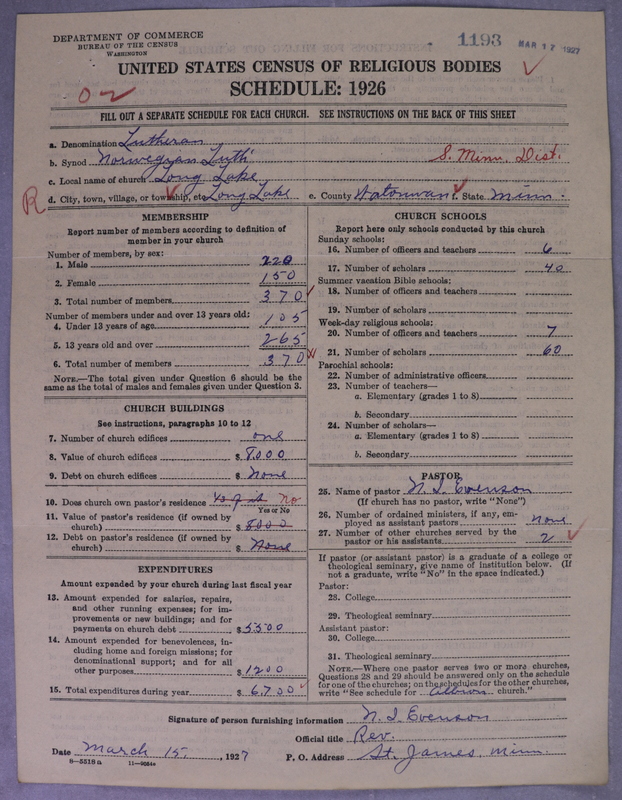 DEPARTMENT OF COMMERCE
BUREAU OF THE CENSUS
WASHINGTON
1193
MAR 17 1927
UNITED STATES CENSUS OF RELIGIOUS BODIES
SCHEDULE: 1926
FILL OUT A SEPARATE SCHEDULE FOR EACH CHURCH. SEE INSTRUCTIONS ON THE BACK OF THIS SHEET
a. Denomination Lutheran
b. Synod Norwegian Luth. S. Minn. Dist.
c. Local name of church Long Lake
R d. City, town, village, or township, etc. Long Lake e. County Watonwan f. State Minn.
MEMBERSHIP
Report number of members according to definition of
member in your church
Number of members, by sex:
1. Male 220
2. Female 150
3. Total number of members 370
Number of members under and over 13 years old:
4. Under 13 years of age 105
5. 13 years old and over 265
6. Total number of members 370
NOTE.—The total given under Question 6 should be the
same as the total of males and females given under Question 3.
CHURCH BUILDINGS
See instructions, paragraphs 10 to 12
7. Number of church edifices one
8. Value of church edifices $ 8000
9. Debt on church edifices $ None
10. Does church own pastor's residence No
Yes or No
11. Value of pastor's residence (if owned by
church) $ 8000
12. Debt on pastor's residence (if owned by
church) $ None
EXPENDITURES
Amount expended by your church during last fiscal year
13. Amount expended for salaries, repairs,
and other running expenses; for im-
provements or new buildings; and for
payments on church debt $ 5500
14. Amount expended for benevolences, in-
cluding home and foreign missions; for
denominational support; and for all
other purposes $ 1200
15. Total expenditures during year $ 6700
CHURCH SCHOOLS
Report here only schools conducted by this church
Sunday schools:
16. Number of officers and teachers 6
17. Number of scholars 40
Summer vacation Bible schools:
18. Number of officers and teachers
19. Number of scholars
Week-day religious schools:
20. Number of officers and teachers 7
21. Number of scholars 60
Parochial schools:
22. Number of administrative officers
23. Number of teachers—
a. Elementary (grades 1 to 8)
b. Secondary
24. Number of scholars—
a. Elementary (grades 1 to 8)
b. Secondary
PASTOR
25. Name of pastor N. I. Evenson
(If church has no pastor, write "None")
26. Number of ordained ministers, if any, em-
ployed as assistant pastors none
27. Number of other churches served by the
pastor or his assistants 2
If pastor (or assistant pastor) is a graduate of a college or
theological seminary, give name of institution below. (If
not a graduate, write "No" in the space indicated.)
Pastor:
28. College
29. Theological seminary
Assistant pastor:
30. College
31. Theological seminary
NOTE.—Where one pastor serves two or more churches,
Questions 28 and 29 should be answered only on the schedule
for one of the churches; on the schedules for the other churches,
write "See schedule for Albion church."
Signature of person furnishing information N. I. Evenson
Official title Rev.
Date March 15, 1927 P. O. Address St. James, Minn.
8—5518a 11—9054